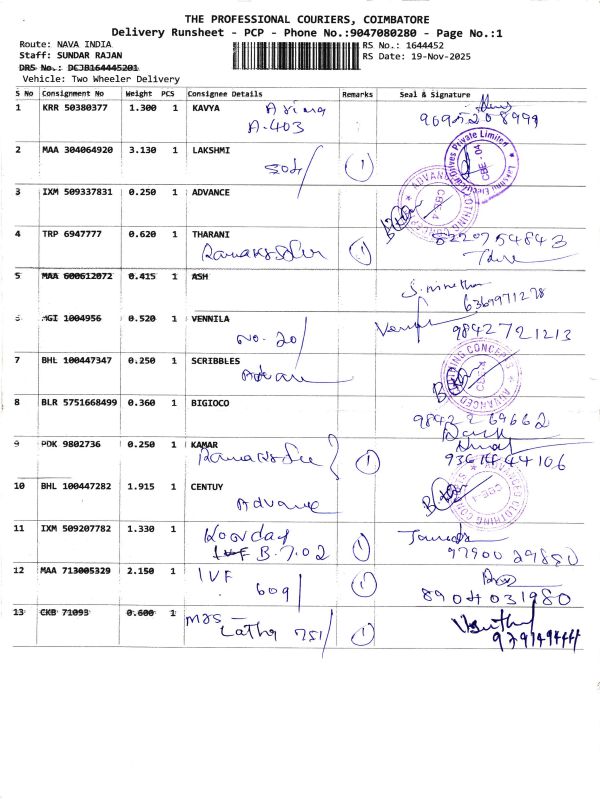 THE PROFESSIONAL COURIERS, COIMBATORE
Delivery Runsheet - PCP - Phone No.:9047080280 - Page No.:1
Route: NAVA INDIA
RS No.: 1644452
Staff: SUNDAR RAJAN
RS Date: 19-Nov-2025
DRS No.: DCJB164445201
Vehicle: Two Wheeler Delivery
S No Consignment No Weight PCS Consignee Details Remarks Seal & Signature
1 KRR 50380377 1.300 1 KAVYA
A-403
9695208999
2 MAA 304064920 3.130 1 LAKSHMI
504/ 1
CBE - 04
3 IXM 509337831 0.250 1 ADVANCE
4 TRP 6947777 0.620 1 THARANI
1 5220754843
5 MAA 600612072 0.415 1 ASH
6369971278
6 MGI 1004956 0.520 1 VENNILA
NO. 20/
9842721213
7 BHL 100447347 0.250 1 SCRIBBLES
8 BLR 5751668499 0.360 1 BIGIOCO
9842269662
9 PDK 9802736 0.250 1 KAMAR
1 9361444106
10 BHL 100447282 1.915 1 CENTUY
Advance
11 IXM 509207782 1.330 1
IVF B.7.02 1
97900 29880
12 MAA 713005329 2.150 1 IVF
609/ 1
8904031980
13 CKB 71093 0.600 1 Mrs
Latha 751/ 1